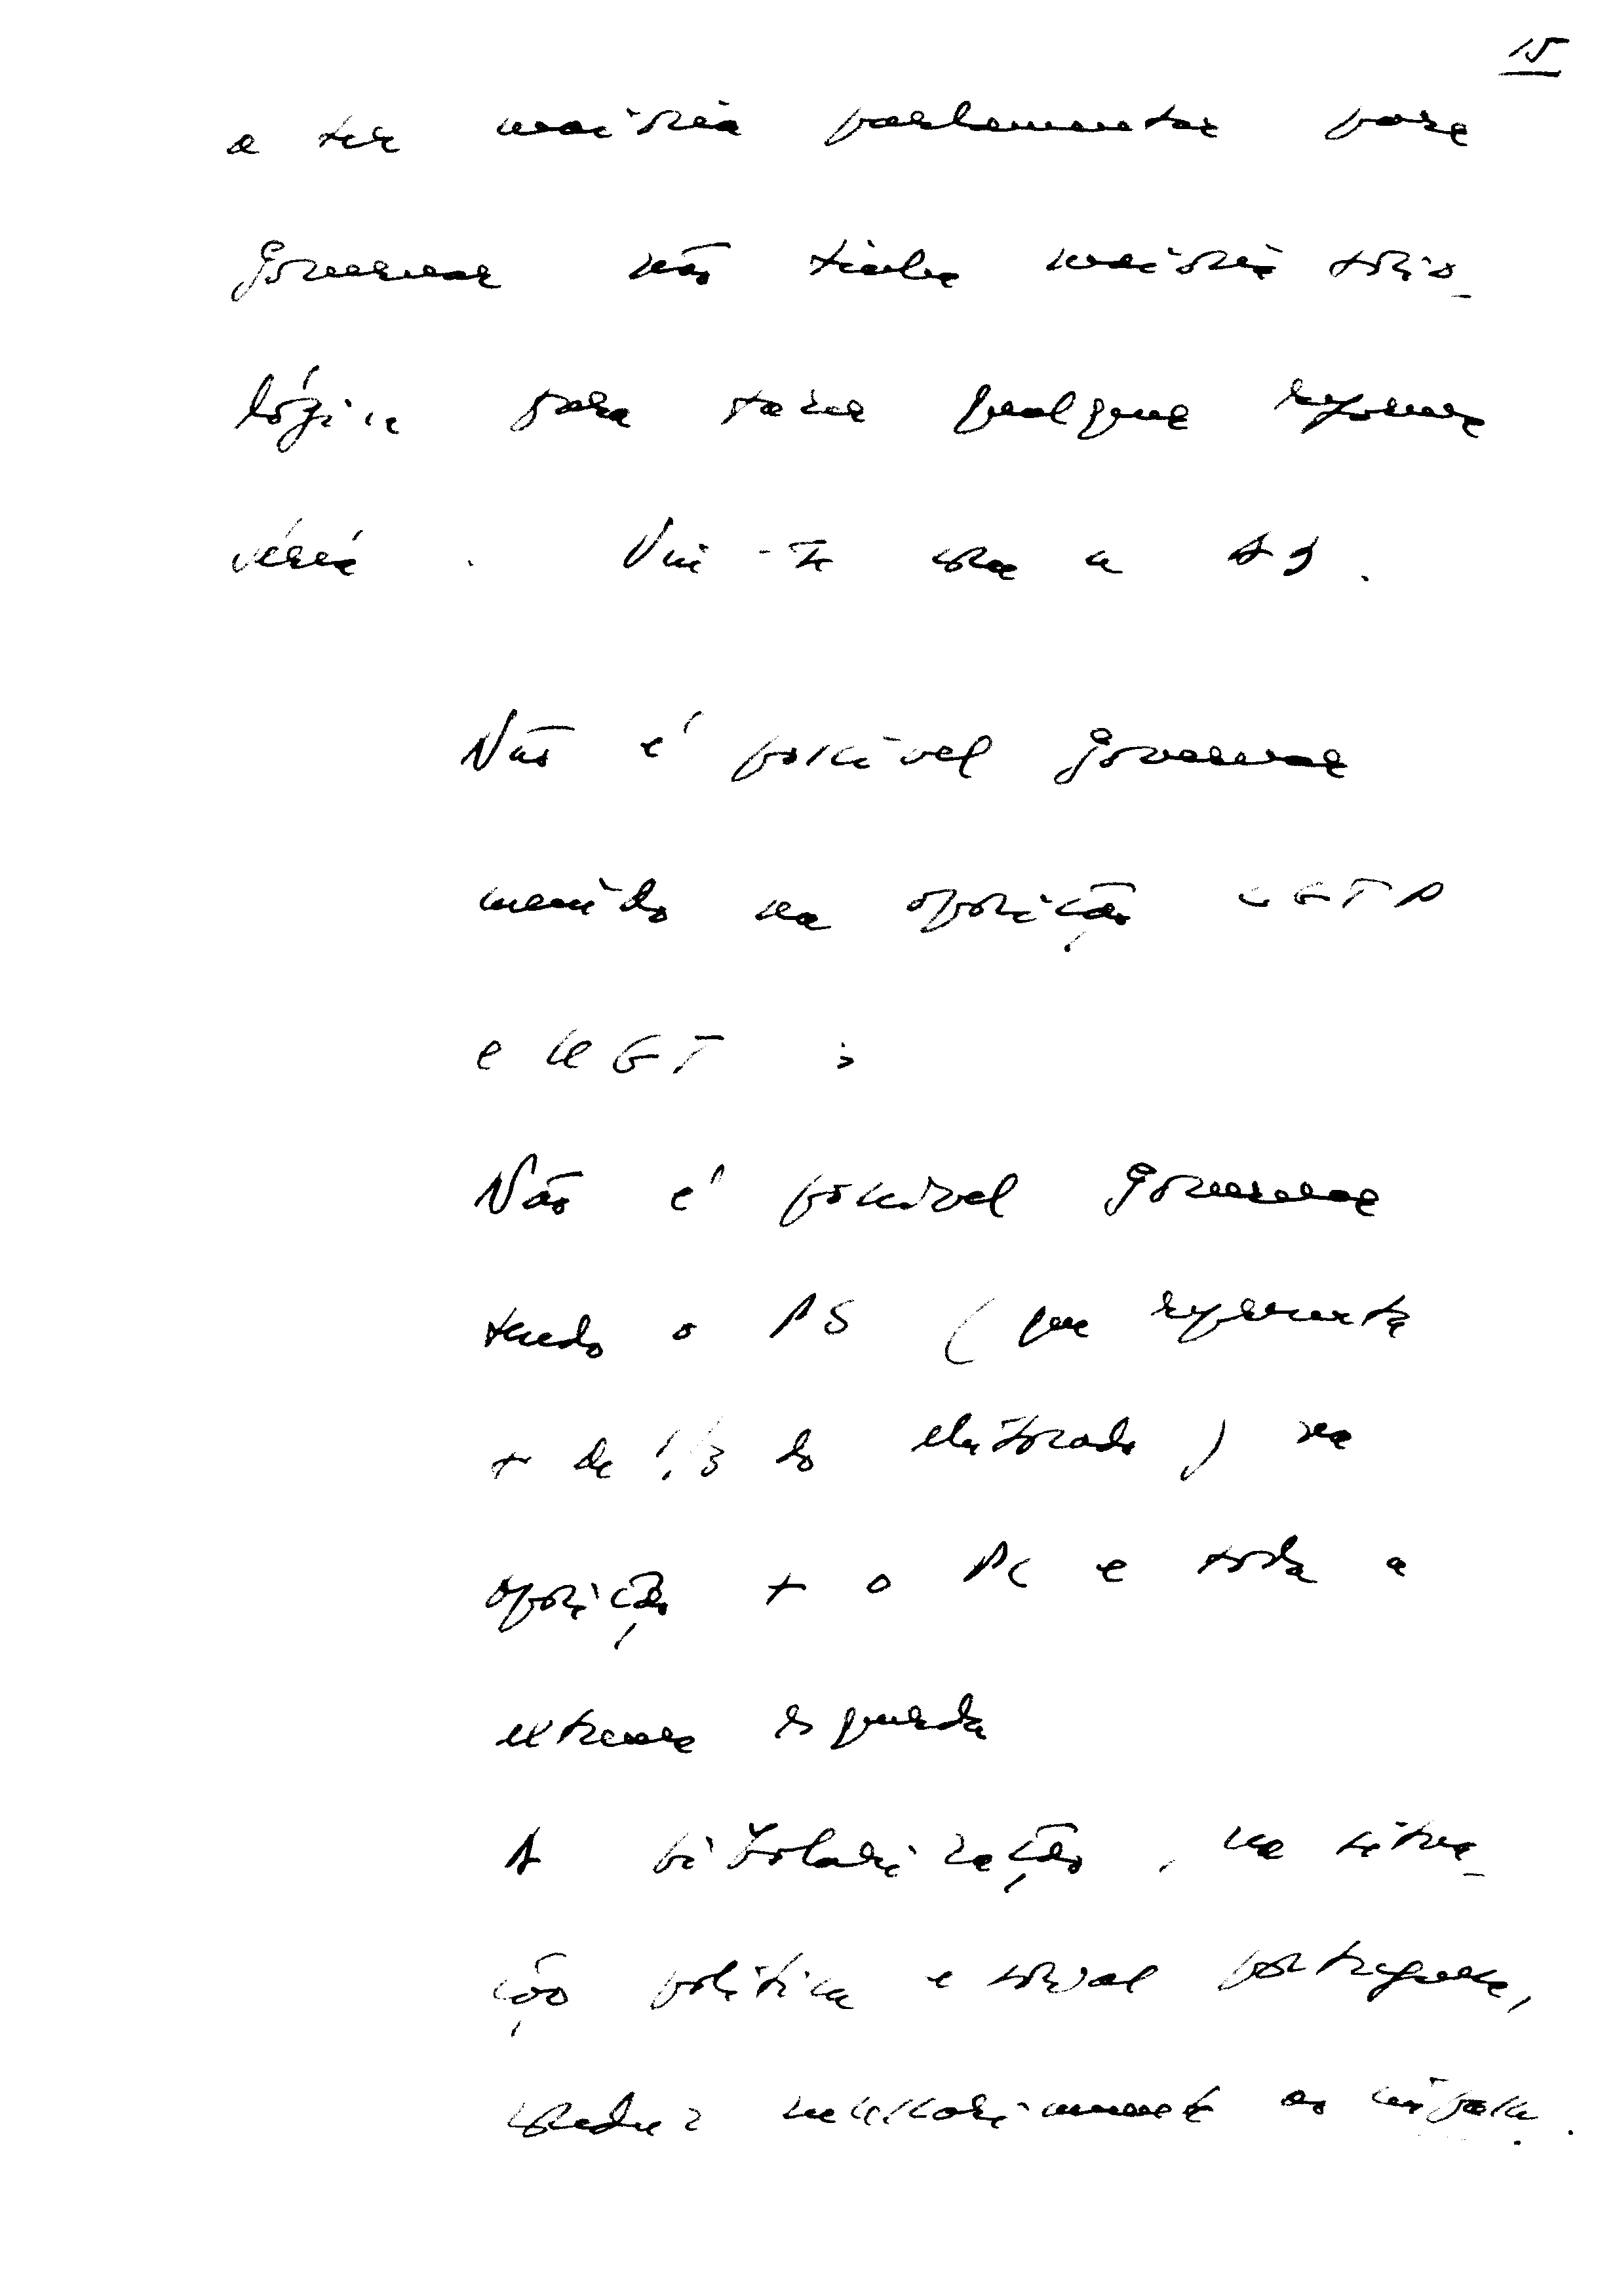 15
a ter maioria parlamentar para
governar não tinha maioria socio-
lógica para fazer qualquer reforma
séria. Viu-se com a AD.
Não é possível governar
unido na oposição CGTP
e UGT;
Não é possível governar
tendo o PS (que representa
+ de 1/3 do eleitorado) na
oposição + o PC e toda a
extrema esquerda
A bipolarização, na situa-
ção política e social portuguesa,
conduz necessariamente ao impasse.